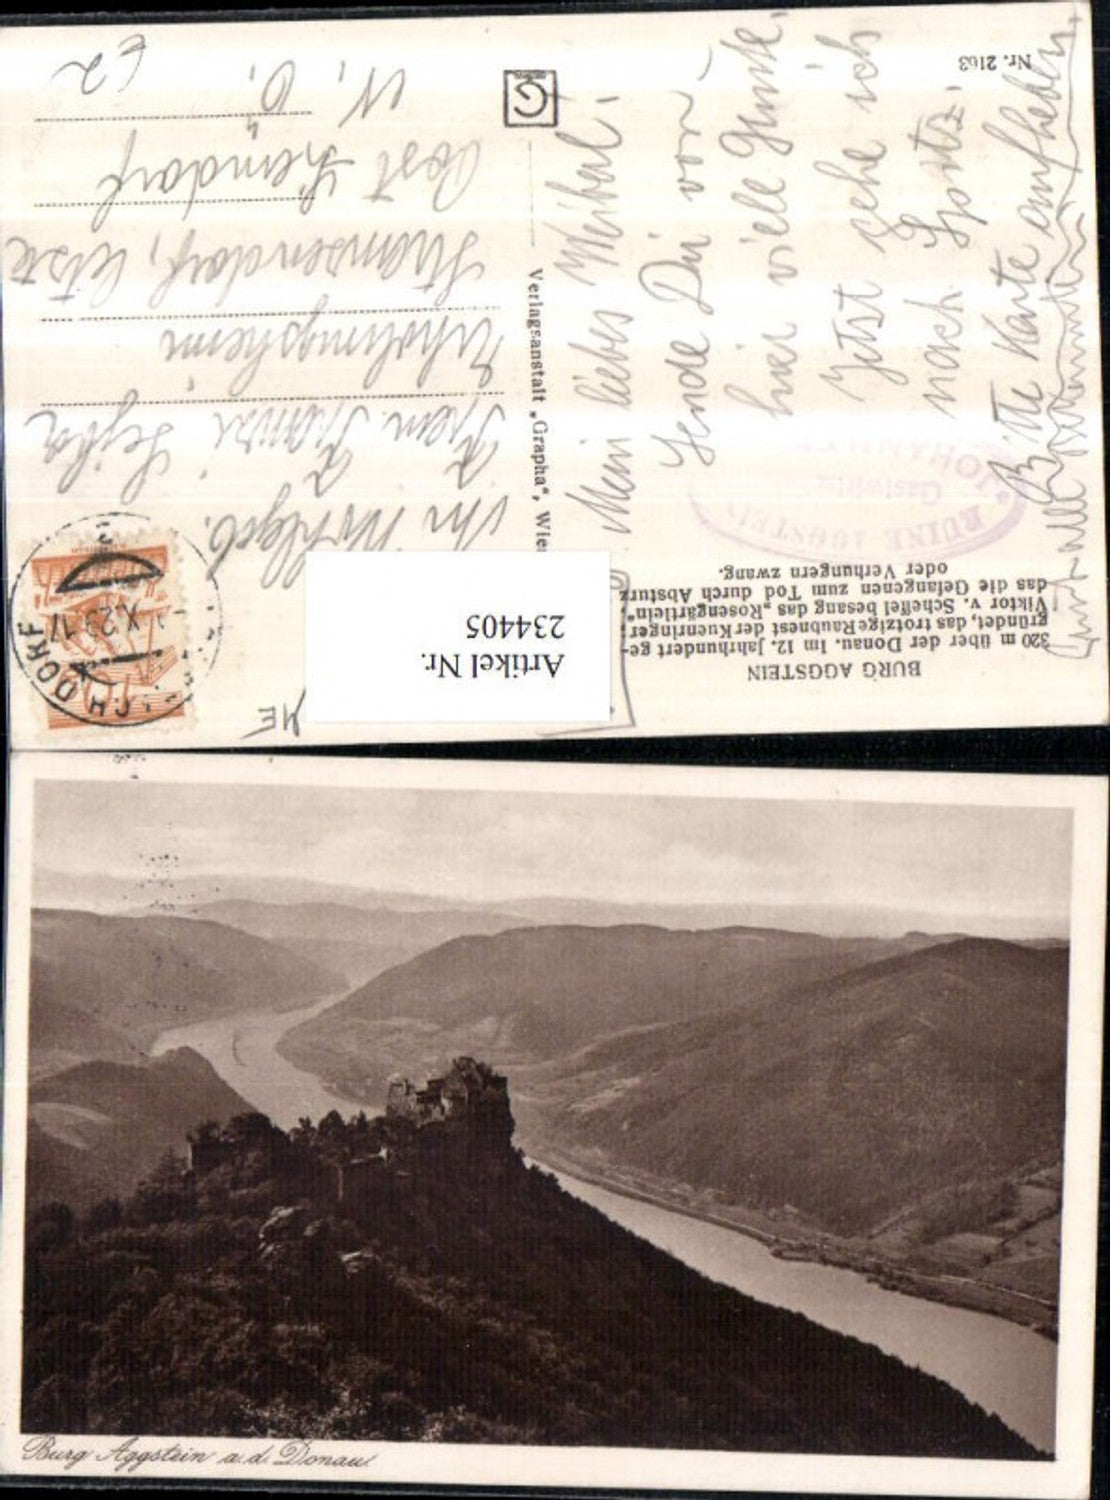 Nr. 2163
BURG AGGSTEIN
320 m über der Donau. Im 12. Jahrhundert ge-
gründet, das trotzige Raubnest der Kuenringer;
Viktor v. Scheffel besang das „Rosengärtlein",
das die Gefangenen zum Tod durch Absturz
oder Verhungern zwang.
RUINE AGGSTEIN
Gastwirt
JOHANN
Mein liebes Weiberl!
Sende Dir von
hier viele Grüße.
Jetzt gehe ich
nach Spitz.
Bitte Karte aufheben.
Verlagsanstalt „Grapha", Wien
G
Ihr Wohlgeb.
Frau
Erholungsheim
Post
N. Ö.
DORF
Artikel Nr.
234405
Burg Aggstein a. d. Donau